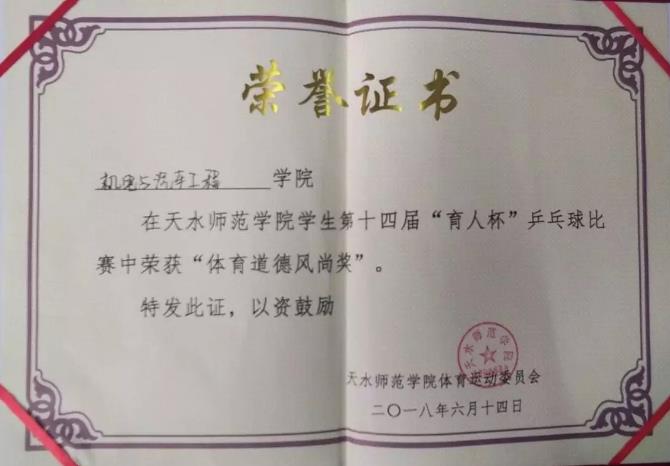 荣誉证书
机电与汽车工程学院
在天水师范学院学生第十四届“育人杯”乒乓球比
赛中荣获“体育道德风尚奖”。
特发此证，以资鼓励
天水师范学院体育运动委员会
二〇一八年六月十四日